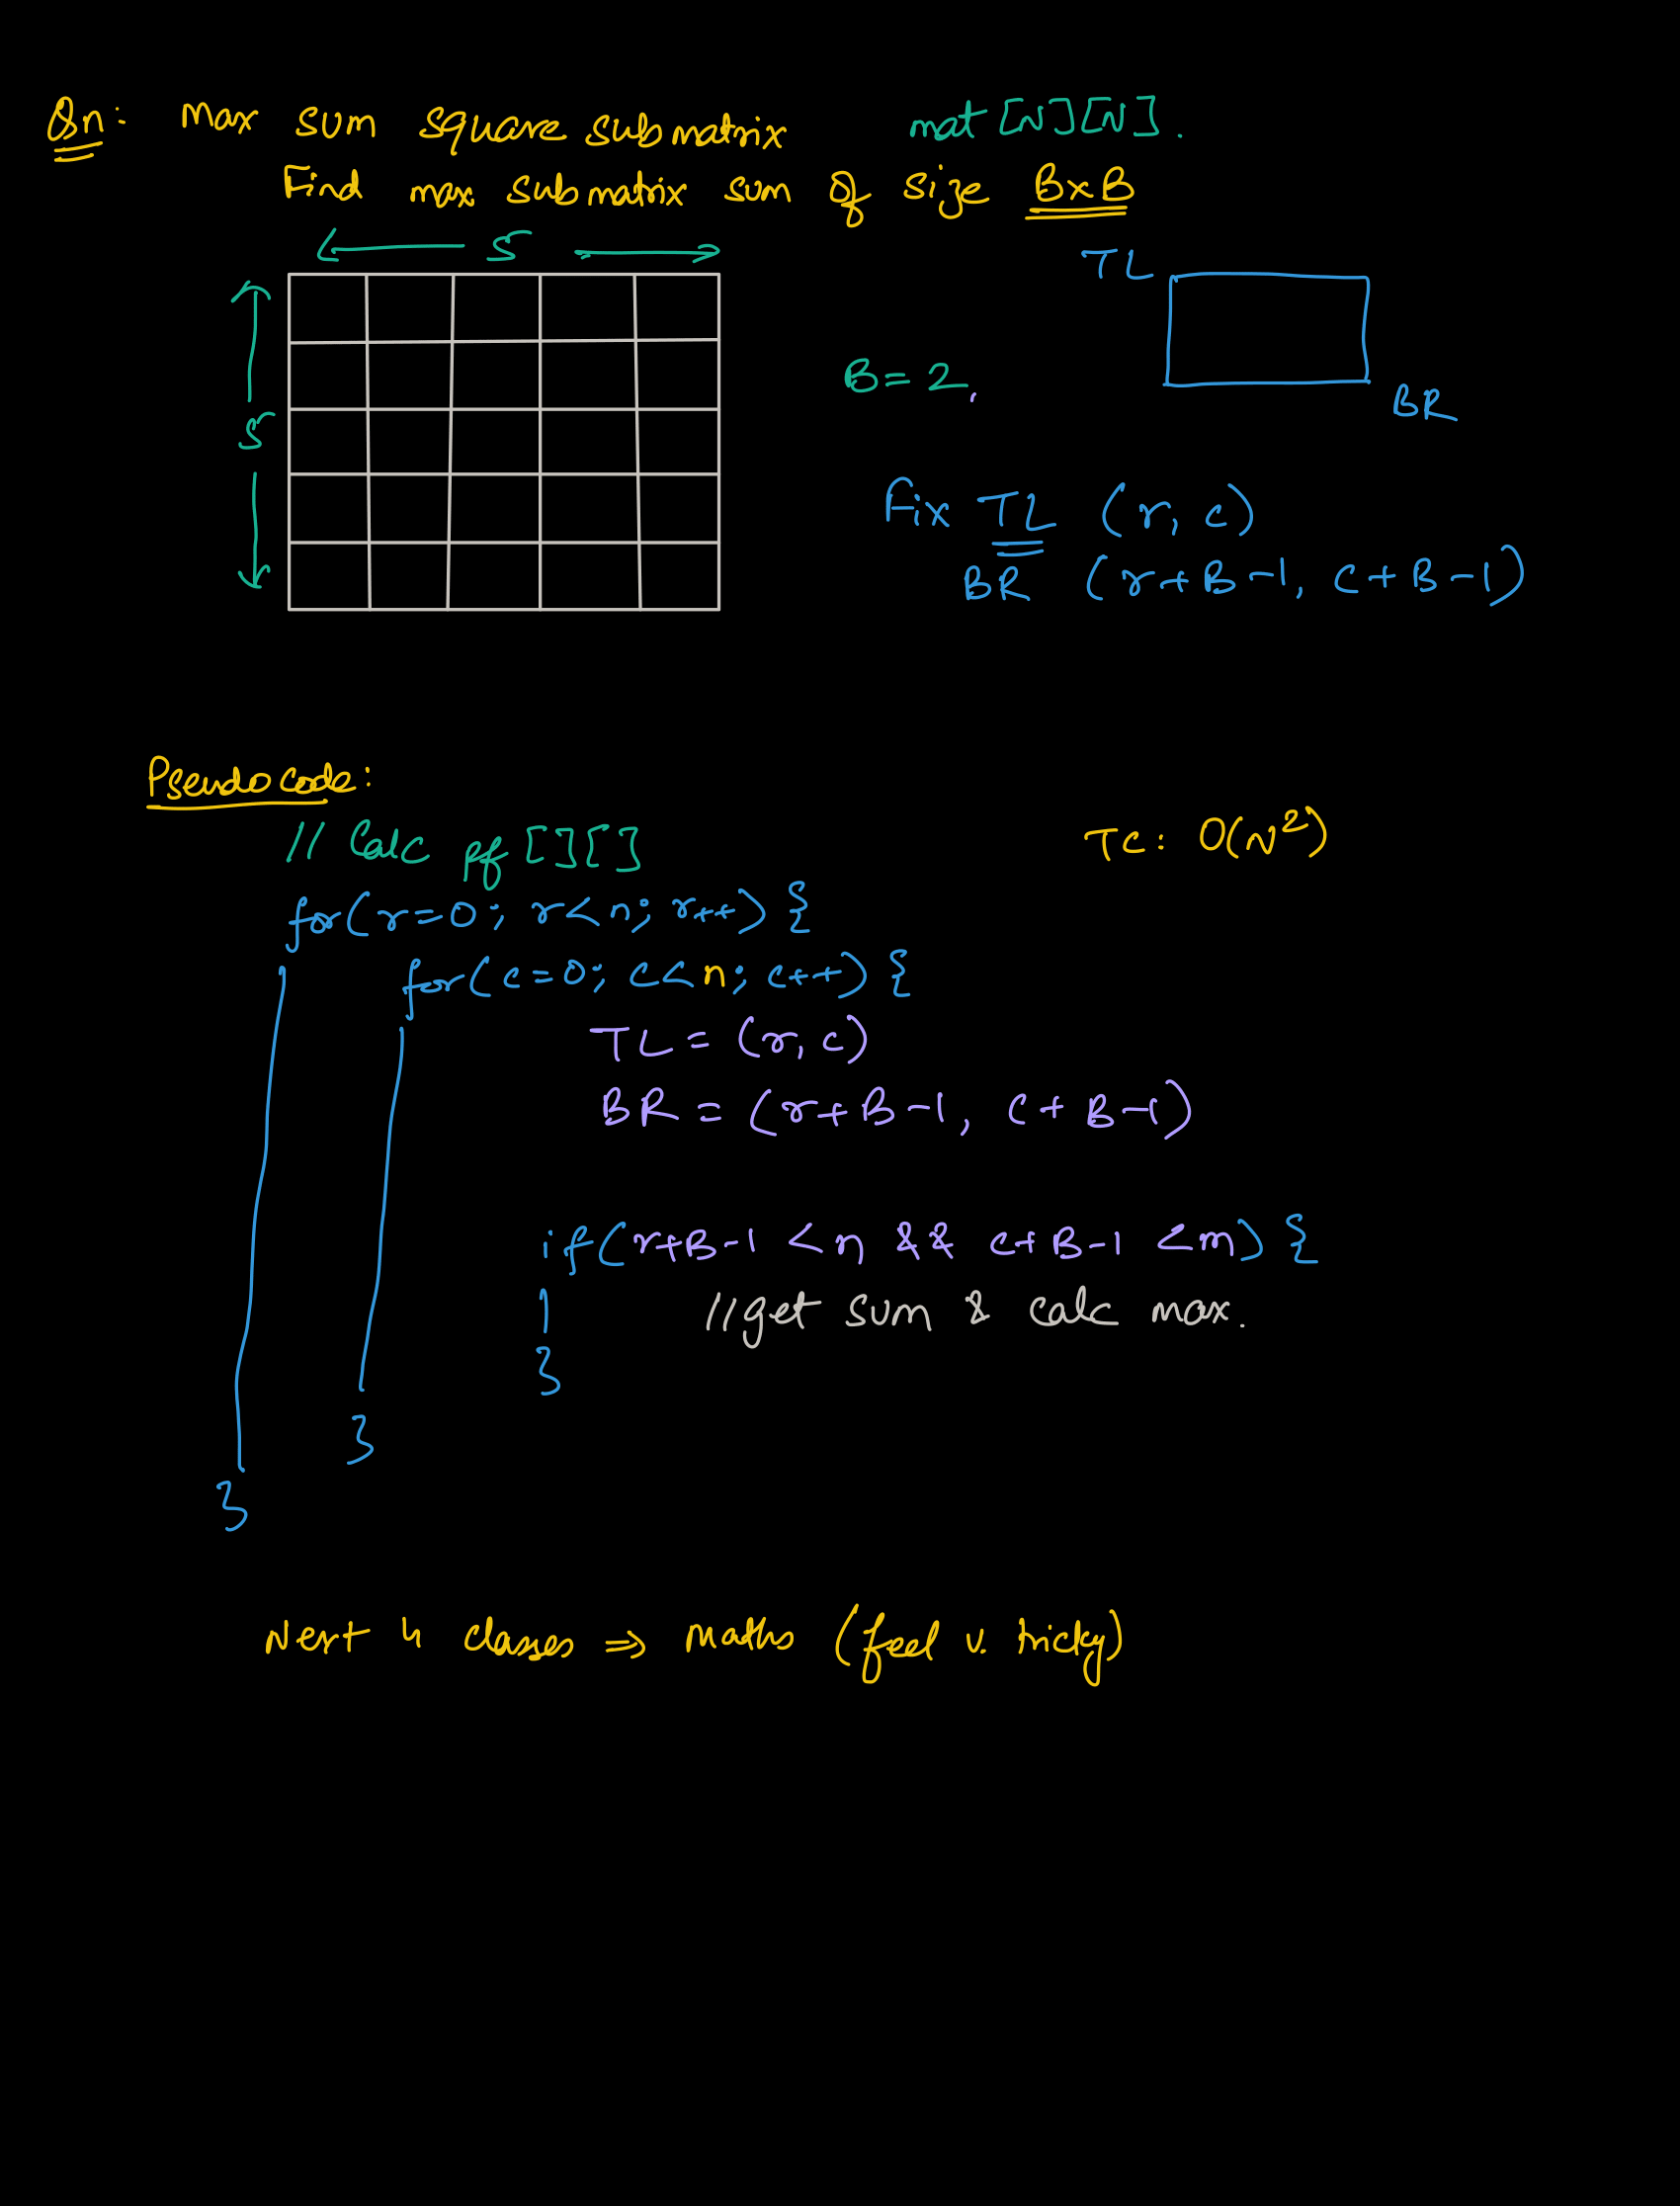 Qn: Max sum square submatrix mat[N][N].
Find max submatrix sum of size BxB
5
TL
5
B=2.
BR
Fix TL (r, c)
BR (r+B-1, c+B-1)
Pseudocode:
// Calc pf[][]
TC: O(N²)
for(r=0; r<n; r++) {
for(c=0; c<n; c++) {
TL = (r, c)
BR = (r+B-1, c+B-1)
if(r+B-1 <n && c+B-1 <m) {
//get sum & calc max.
}
}
}
Next 4 classes => maths (feel v. tricky)